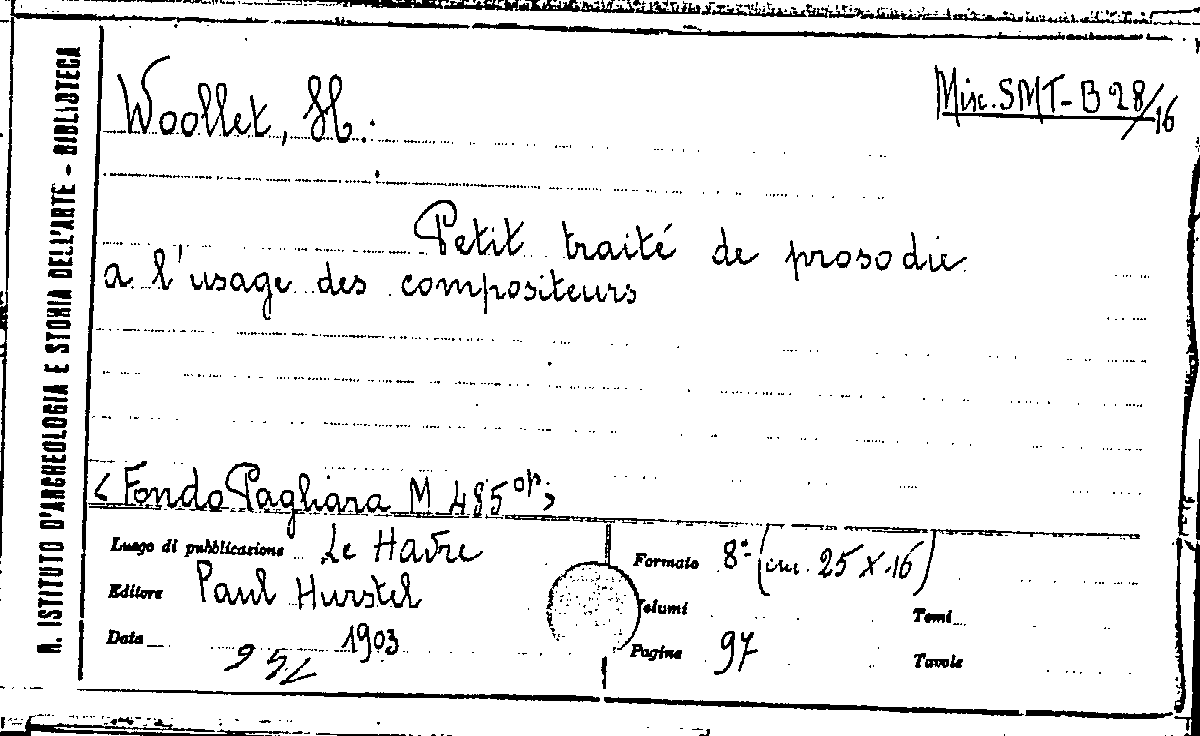 R. ISTITUTO D'ARCHEOLOGIA E STORIA DELL'ARTE - BIBLIOTECA
Woollet, H.
Misc. SMT-B 28/16
Petit traité de prosodie
a l'usage des compositeurs
<Fondo Pagliara M 485 op.>
Luogo di pubblicazione Le Havre
Editore Paul Hurstel
Data 1903
Formato 8º (cm. 25 x 16)
Volumi
Tomi
Pagine 97
Tavole